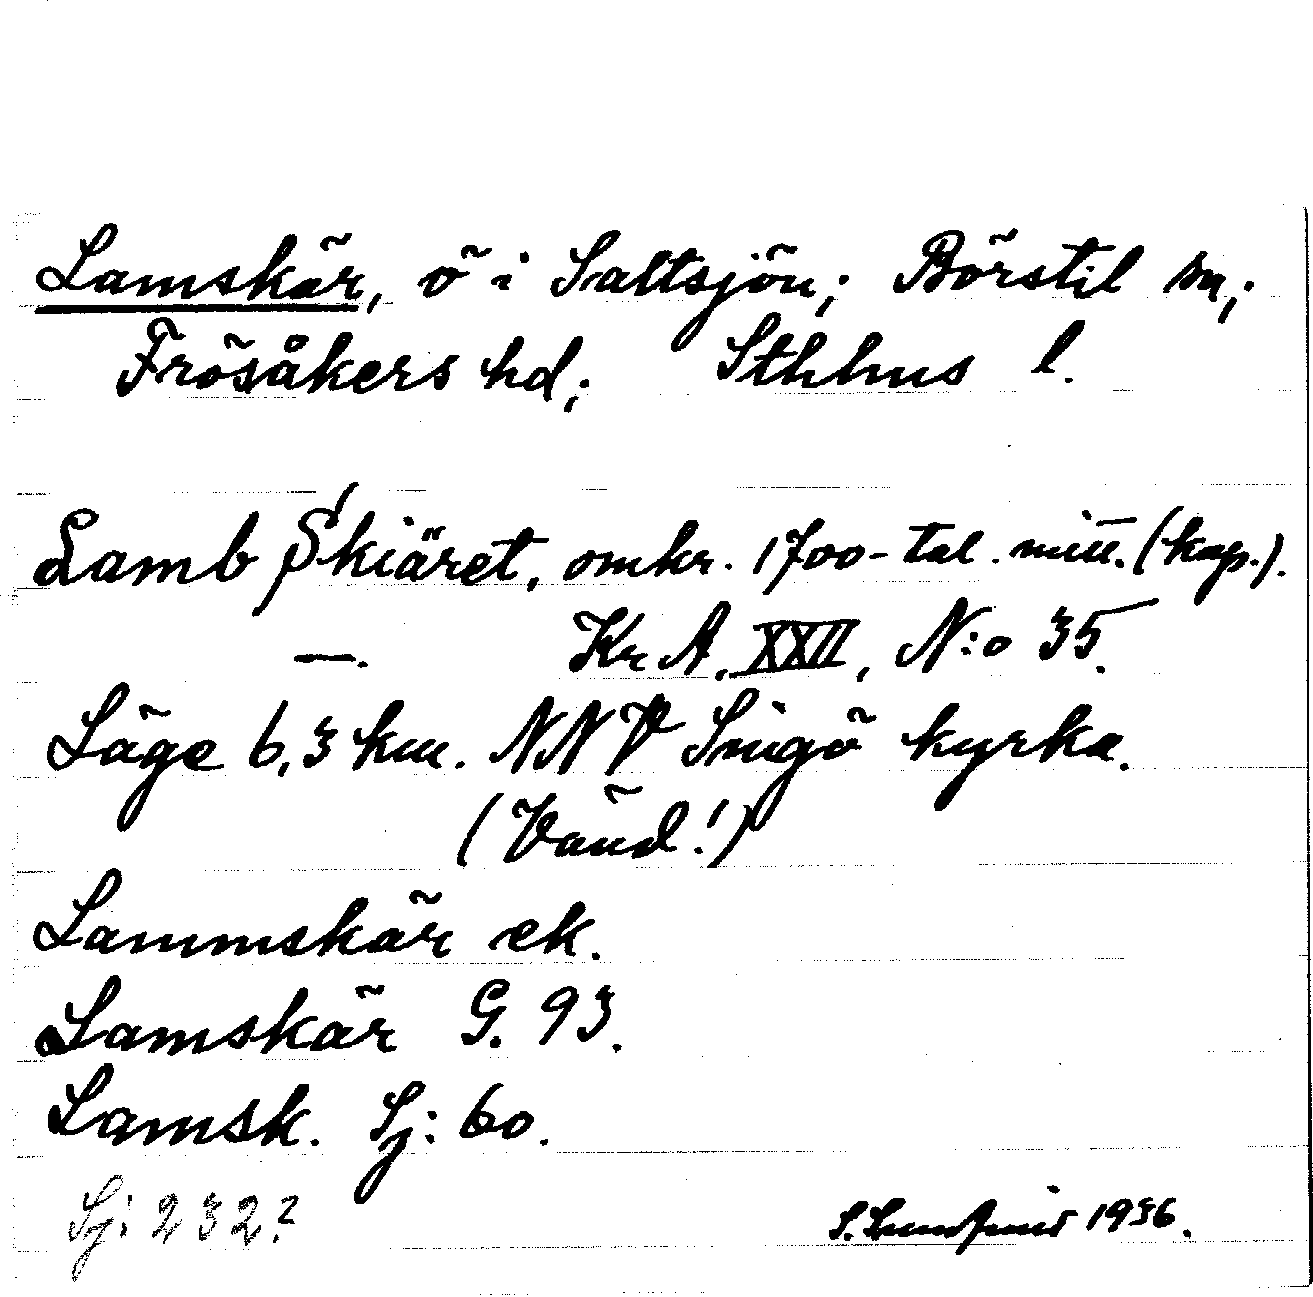 Lamskär, ö i Saltsjön; Börstil sn;
Frösåkers hd; Sthlms l.
Lamb Skiäret, omkr. 1700-tal. mitt. (kop.).
—. Kr A, XXII, N:o 35.
Läge 6,3 km. NNV Singö kyrka.
(Vänd!)
Lammskär ek.
Lamskär G. 93.
Lamsk. Sj: 60.
Sj: 232?
S. 1936.